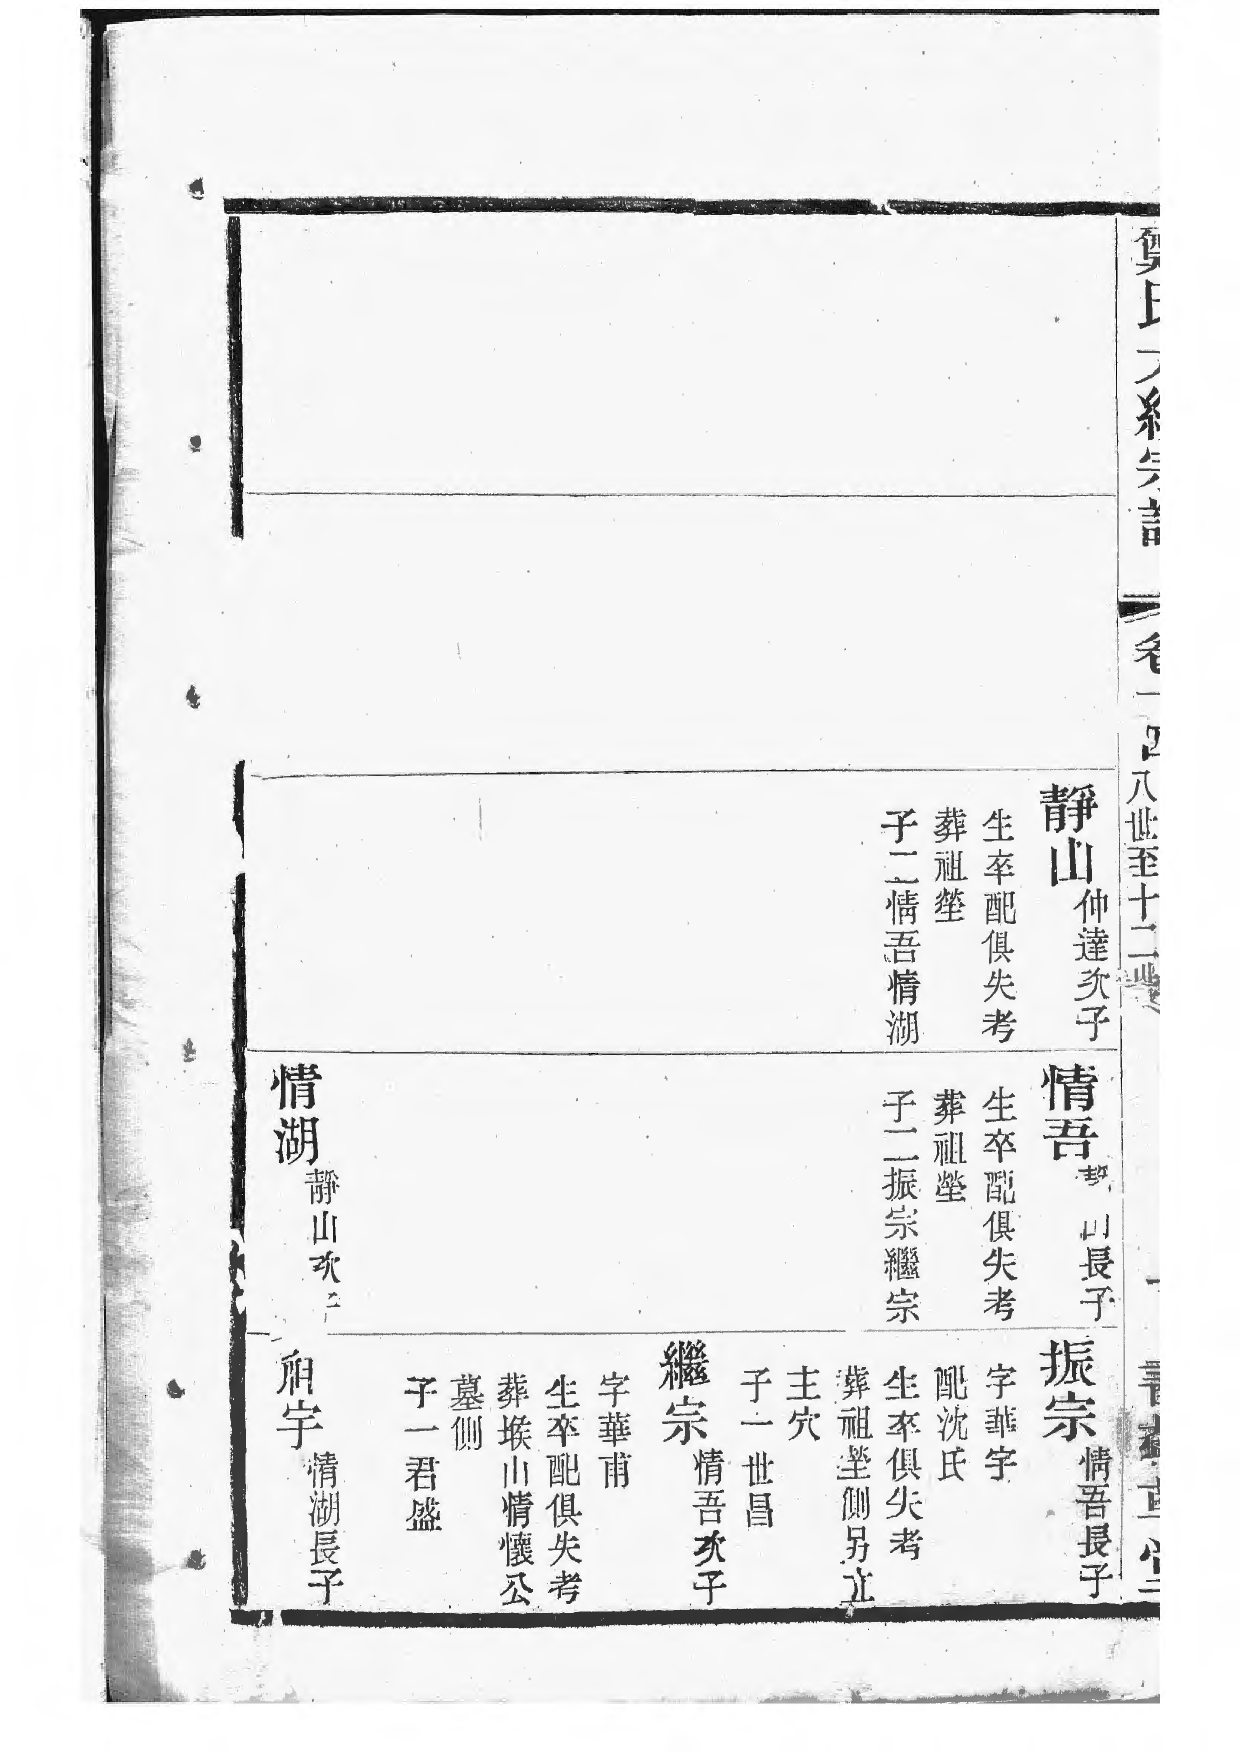 氏大統宗譜
卷十四
八世至十二世
靜山
仲達次子
生卒配俱失考
葬祖塋
子二情吾情湖
情吾
山長子
生卒配俱失考
葬祖塋
子二振宗繼宗
情湖
靜山次子
振宗
情吾長子
字華宇
配沈氏
生卒俱失考
葬祖塋側另立
主穴
子一世昌
繼宗
情吾次子
字華甫
生卒配俱失考
葬堠山情懷公
墓側
子一君盛
宇
情湖長子